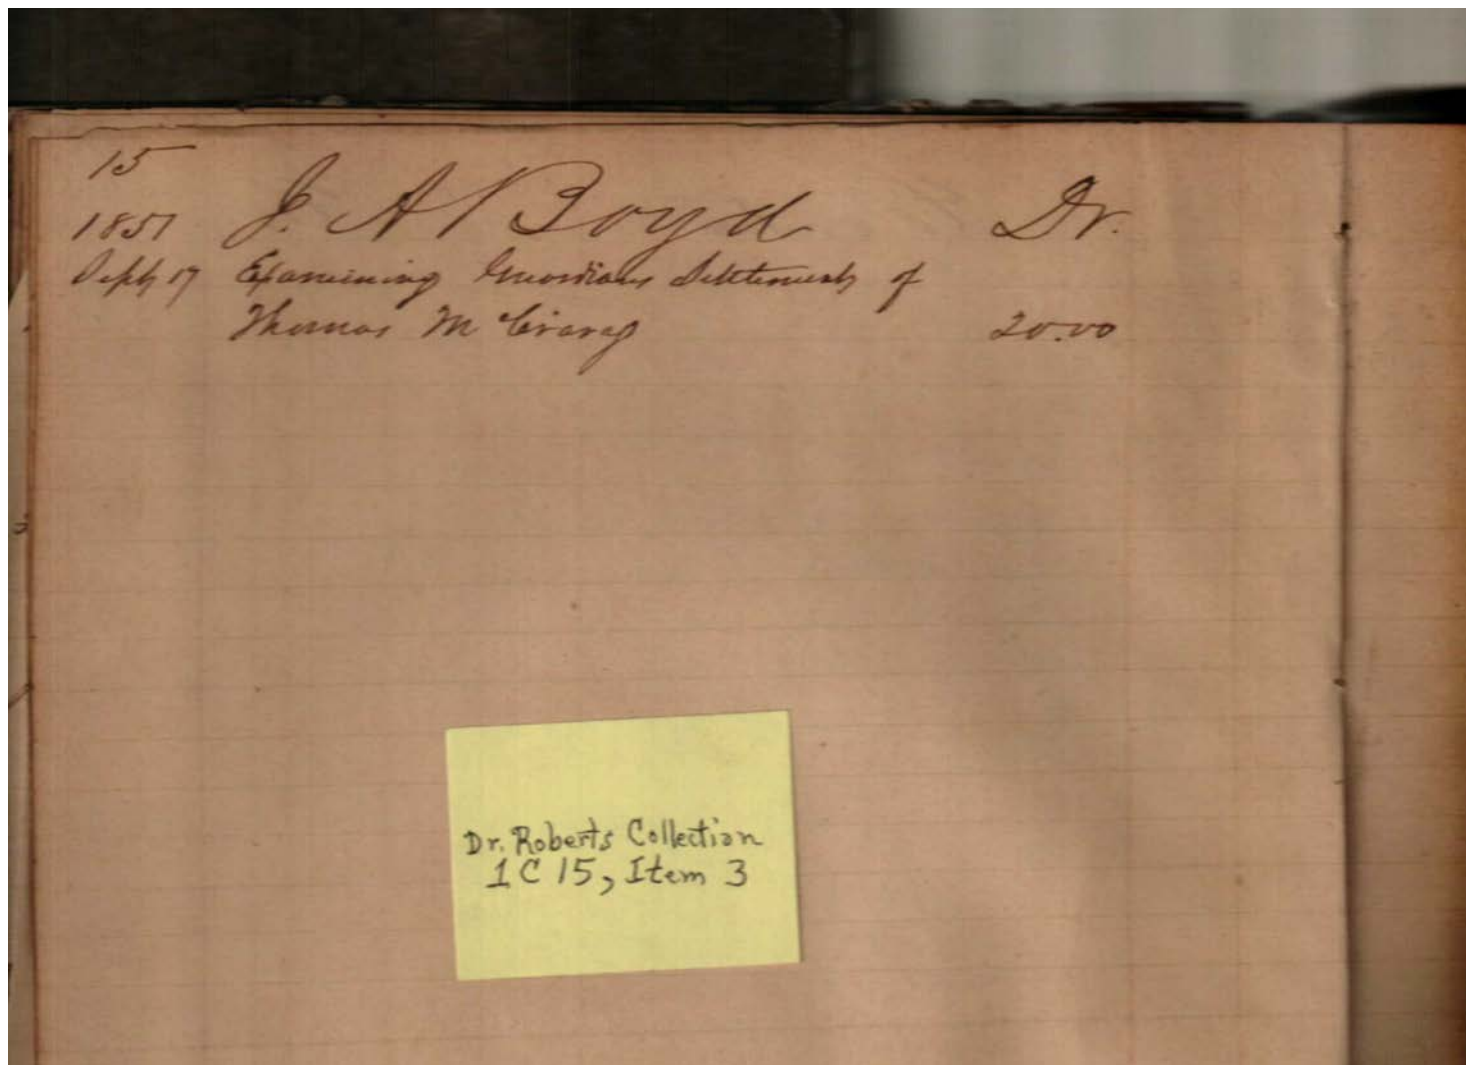 15
1857 J. A Boyd Dr.
Sept 17 Examining Guardians Settlements of
Thomas M Crary 20.00
Dr. Roberts Collection
1C15, Item 3